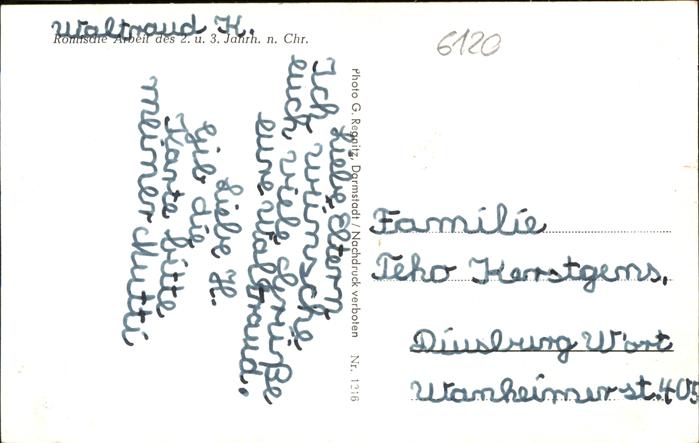 Waltraud K.
Römische Arbeit des 2. u. 3. Jahrh. n. Chr.
6120
Liebe Eltern
Ich wünsche
euch viele Grüße
eure Waltraud.
Liebe H.
Gib die
Karte bitte
meiner Mutti
Photo G. Regnitz, Darmstadt / Nachdruck verboten Nr. 1216
Familie
Teho Kerstgens,
Diusburg Wort
Wanheimerst. 405